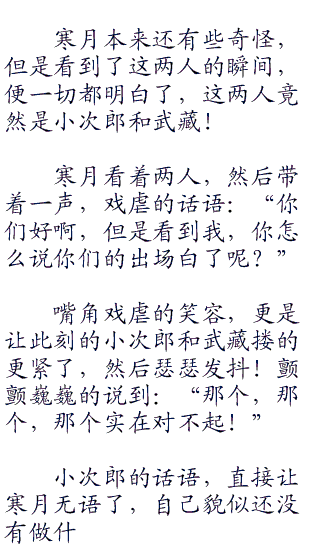 寒月本来还有些奇怪，
但是看到了这两人的瞬间，
便一切都明白了，这两人竟
然是小次郎和武藏！
寒月看着两人，然后带
着一声，戏虐的话语：“你
们好啊，但是看到我，你怎
么说你们的出场白了呢？”
嘴角戏虐的笑容，更是
让此刻的小次郎和武藏搂的
更紧了，然后瑟瑟发抖！颤
颤巍巍的说到：“那个，那
个，那个实在对不起！”
小次郎的话语，直接让
寒月无语了，自己貌似还没
有做什